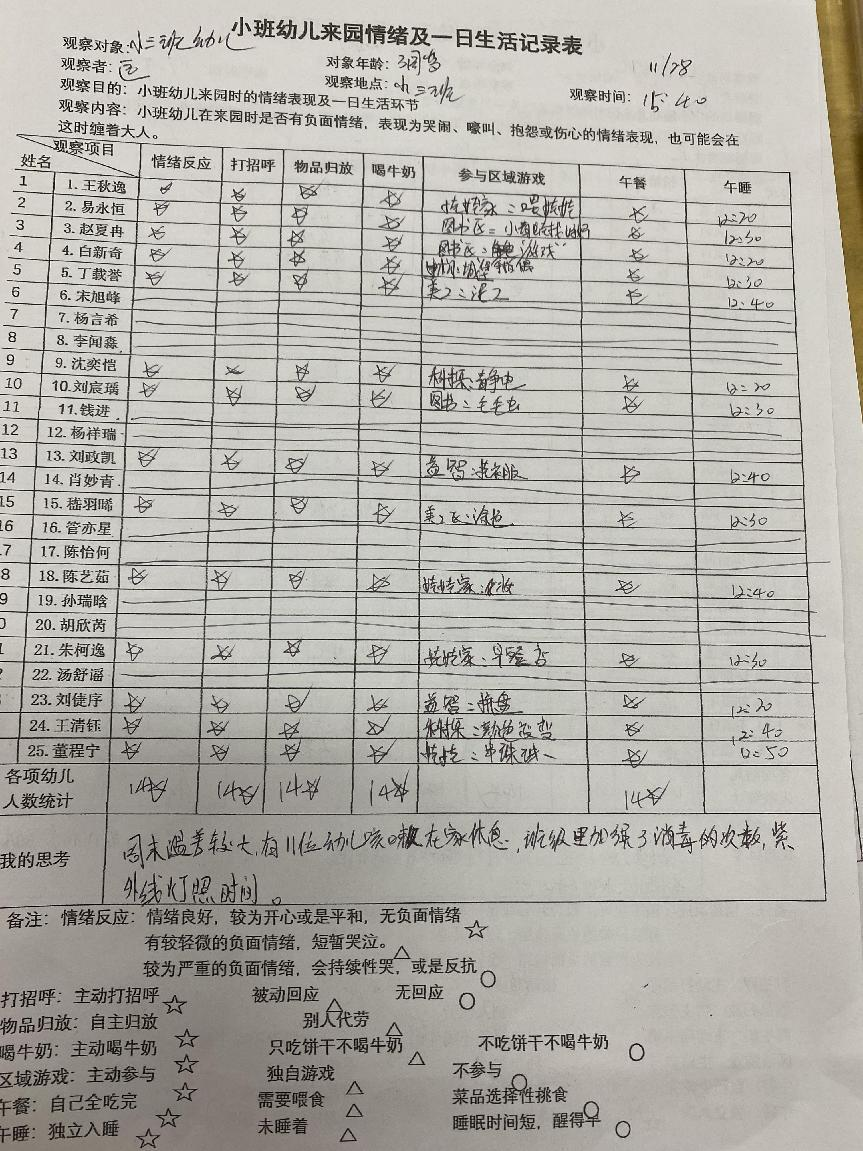 小班幼儿来园情绪及一日生活记录表
观察对象:小三班幼儿
观察者: 对象年龄: 11/28
观察目的: 小班幼儿来园时的情绪表现及一日生活环节 观察地点:小三班 观察时间: 15:40
观察内容: 小班幼儿在来园时是否有负面情绪, 表现为哭闹、嚎叫、抱怨或伤心的情绪表现, 也可能会在
这时缠着大人。
姓名 观察项目 情绪反应 打招呼 物品归放 喝牛奶 参与区域游戏 午餐 午睡
1 1. 王秋逸 ☆ ☆ ☆ ☆ 娃娃家:喂娃娃 ☆ 12:20
2 2. 易永恒 ☆ ☆ ☆ ☆ 图书区: ☆ 12:30
3 3. 赵夏冉 ☆ ☆ ☆ ☆ 图书区: 游戏 ☆ 12:20
4 4. 白新奇 ☆ ☆ ☆ ☆ ☆ 12:30
5 5. 丁载誉 ☆ ☆ ☆ ☆ 美工:泥工 ☆ 12:40
6 6. 宋旭峰
7 7. 杨言希
8 8. 李闻淼
9 9. 沈奕恺 ☆ ☆ ☆ ☆ 科探: ☆ 12:20
10 10. 刘宸瑀 ☆ ☆ ☆ ☆ 图书:毛毛虫 ☆ 12:30
11 11. 钱进
12 12. 杨祥瑞
13 13. 刘政凯 ☆ ☆ ☆ ☆ 益智:衣服 ☆ 12:40
14 14. 肖妙青
15 15. 嵇羽晞 ☆ ☆ ☆ ☆ 美工区:涂色 ☆ 12:30
16 16. 管亦星
7 17. 陈怡何
8 18. 陈艺茹 ☆ ☆ ☆ ☆ 娃娃家:化妆 ☆ 12:40
9 19. 孙瑞晗
0 20. 胡欣芮
1 21. 朱柯逸 ☆ ☆ ☆ ☆ 娃娃家:早餐店 ☆ 12:30
22. 汤舒谣
23. 刘徒序 ☆ ☆ ☆ ☆ 益智:拼盘 ☆ 12:20
24. 王清钰 ☆ ☆ ☆ ☆ 科探:颜色改变 ☆ 12:40
25. 董程宁 ☆ ☆ ☆ ☆ 串珠 ☆ 12:50
各项幼儿
人数统计 14☆ 14☆ 14☆ 14☆ 14☆
我的思考 周末温差较大,有11位幼儿咳嗽在家休息,班级里加强了消毒的次数,紫
外线灯照时间。
备注: 情绪反应: 情绪良好, 较为开心或是平和, 无负面情绪 ☆
有较轻微的负面情绪, 短暂哭泣。 △
较为严重的负面情绪, 会持续性哭, 或是反抗 ○
打招呼: 主动打招呼 ☆ 被动回应 △ 无回应 ○
物品归放: 自主归放 ☆ 别人代劳 △
喝牛奶: 主动喝牛奶 ☆ 只吃饼干不喝牛奶 △ 不吃饼干不喝牛奶 ○
区域游戏: 主动参与 ☆ 独自游戏 △ 不参与 ○
午餐: 自己全吃完 ☆ 需要喂食 △ 菜品选择性挑食 ○
午睡: 独立入睡 ☆ 未睡着 △ 睡眠时间短, 醒得早 ○